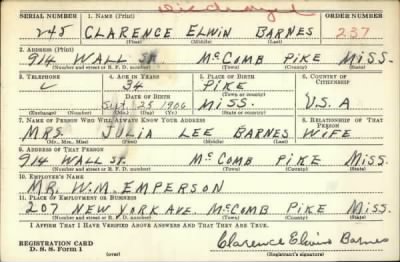 Discharged
SERIAL NUMBER 1. NAME (Print) ORDER NUMBER
245 CLARENCE ELWIN BARNES 237
(First) (Middle) (Last)
2. ADDRESS (Print)
914 WALL ST. McCOMB PIKE MISS.
(Number and street or R. F. D. number) (Town) (County) (State)
3. TELEPHONE 4. AGE IN YEARS 5. PLACE OF BIRTH 6. COUNTRY OF CITIZENSHIP
34 PIKE
DATE OF BIRTH (Town or county)
Sept 25 1906 MISS. U.S.A
(Exchange) (Number) (Mo.) (Day) (Yr.) (State or country)
7. NAME OF PERSON WHO WILL ALWAYS KNOW YOUR ADDRESS 8. RELATIONSHIP OF THAT PERSON
MRS. JULIA LEE BARNES WIFE
(Mr., Mrs., Miss) (First) (Middle) (Last)
9. ADDRESS OF THAT PERSON
914 WALL ST. McCOMB PIKE MISS.
(Number and street or R. F. D. number) (Town) (County) (State)
10. EMPLOYER'S NAME
MR. W.M. EMPERSON
11. PLACE OF EMPLOYMENT OR BUSINESS
207 NEW YORK AVE. McCOMB PIKE MISS.
(Number and street or R. F. D. number) (Town) (County) (State)
I AFFIRM THAT I HAVE VERIFIED ABOVE ANSWERS AND THAT THEY ARE TRUE.
REGISTRATION CARD
D. S. S. Form 1 (over)
Clarence Elwin Barnes
(Registrant's signature)